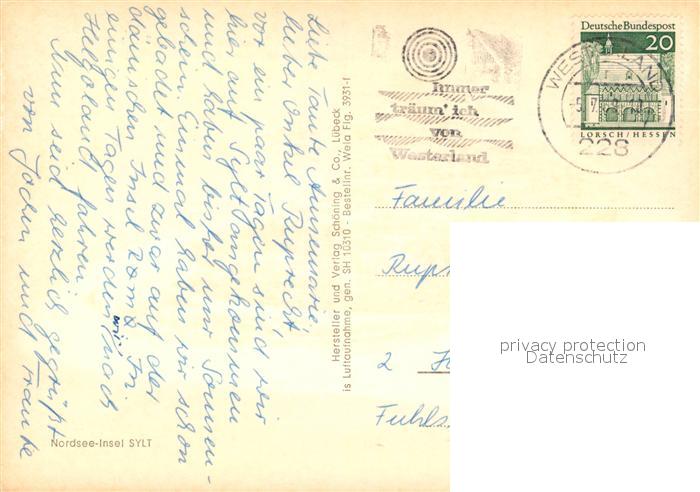 Liebe Tante Annemarie,
liebe Onkel Ruprecht
vor ein paar Tagen sind wir
hier auf Sylt angekommen
und haben bisher nur Sonnen-
schein. Einmal haben wir schon
gebadet und zwar auf der
dänischen Insel Römö. In
einigen Tagen werden wir nach
Helgoland fahren.
Nun seid herzlich gegrüßt
von Jochen und Frauke
Nordsee-Insel SYLT
Hersteller und Verlag Schöning & Co., Lübeck
is Luftaufnahme, gen. SH 10310 - Bestellnr. Wela Flg. 3931-f
Immer
träum' ich
von
Westerland
WESTERLAND
228
Deutsche Bundespost
20
LORSCH/HESSEN
Familie
Rup
2 H
Fuhls
privacy protection
Datenschutz